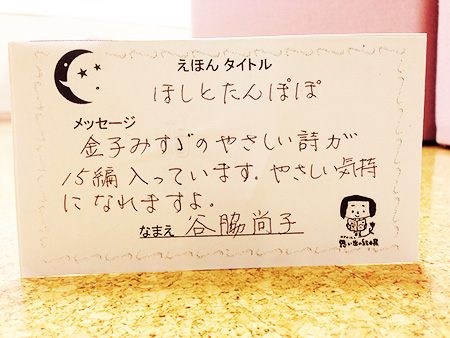 えほん タイトル
ほしとたんぽぽ
メッセージ
金子みすゞのやさしい詩が
15編入っています。やさしい気持
になれますよ。
なまえ 谷脇尚子